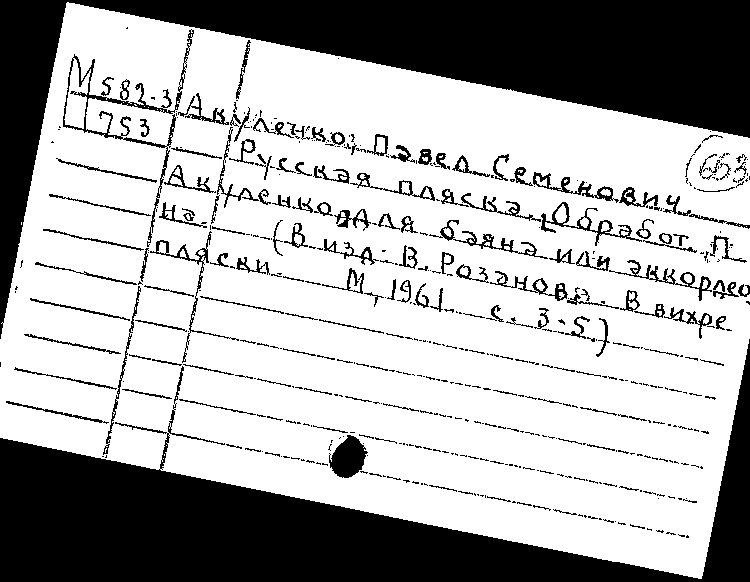 М 582-3 Акуленко, Павел Семенович.
753 Русская пляска. [Обработ. П.
653
Акуленко] для баяна или аккордео
на. (В изд. В. Розанова. В вихре
пляски. М, 1961 с. 3-5.)